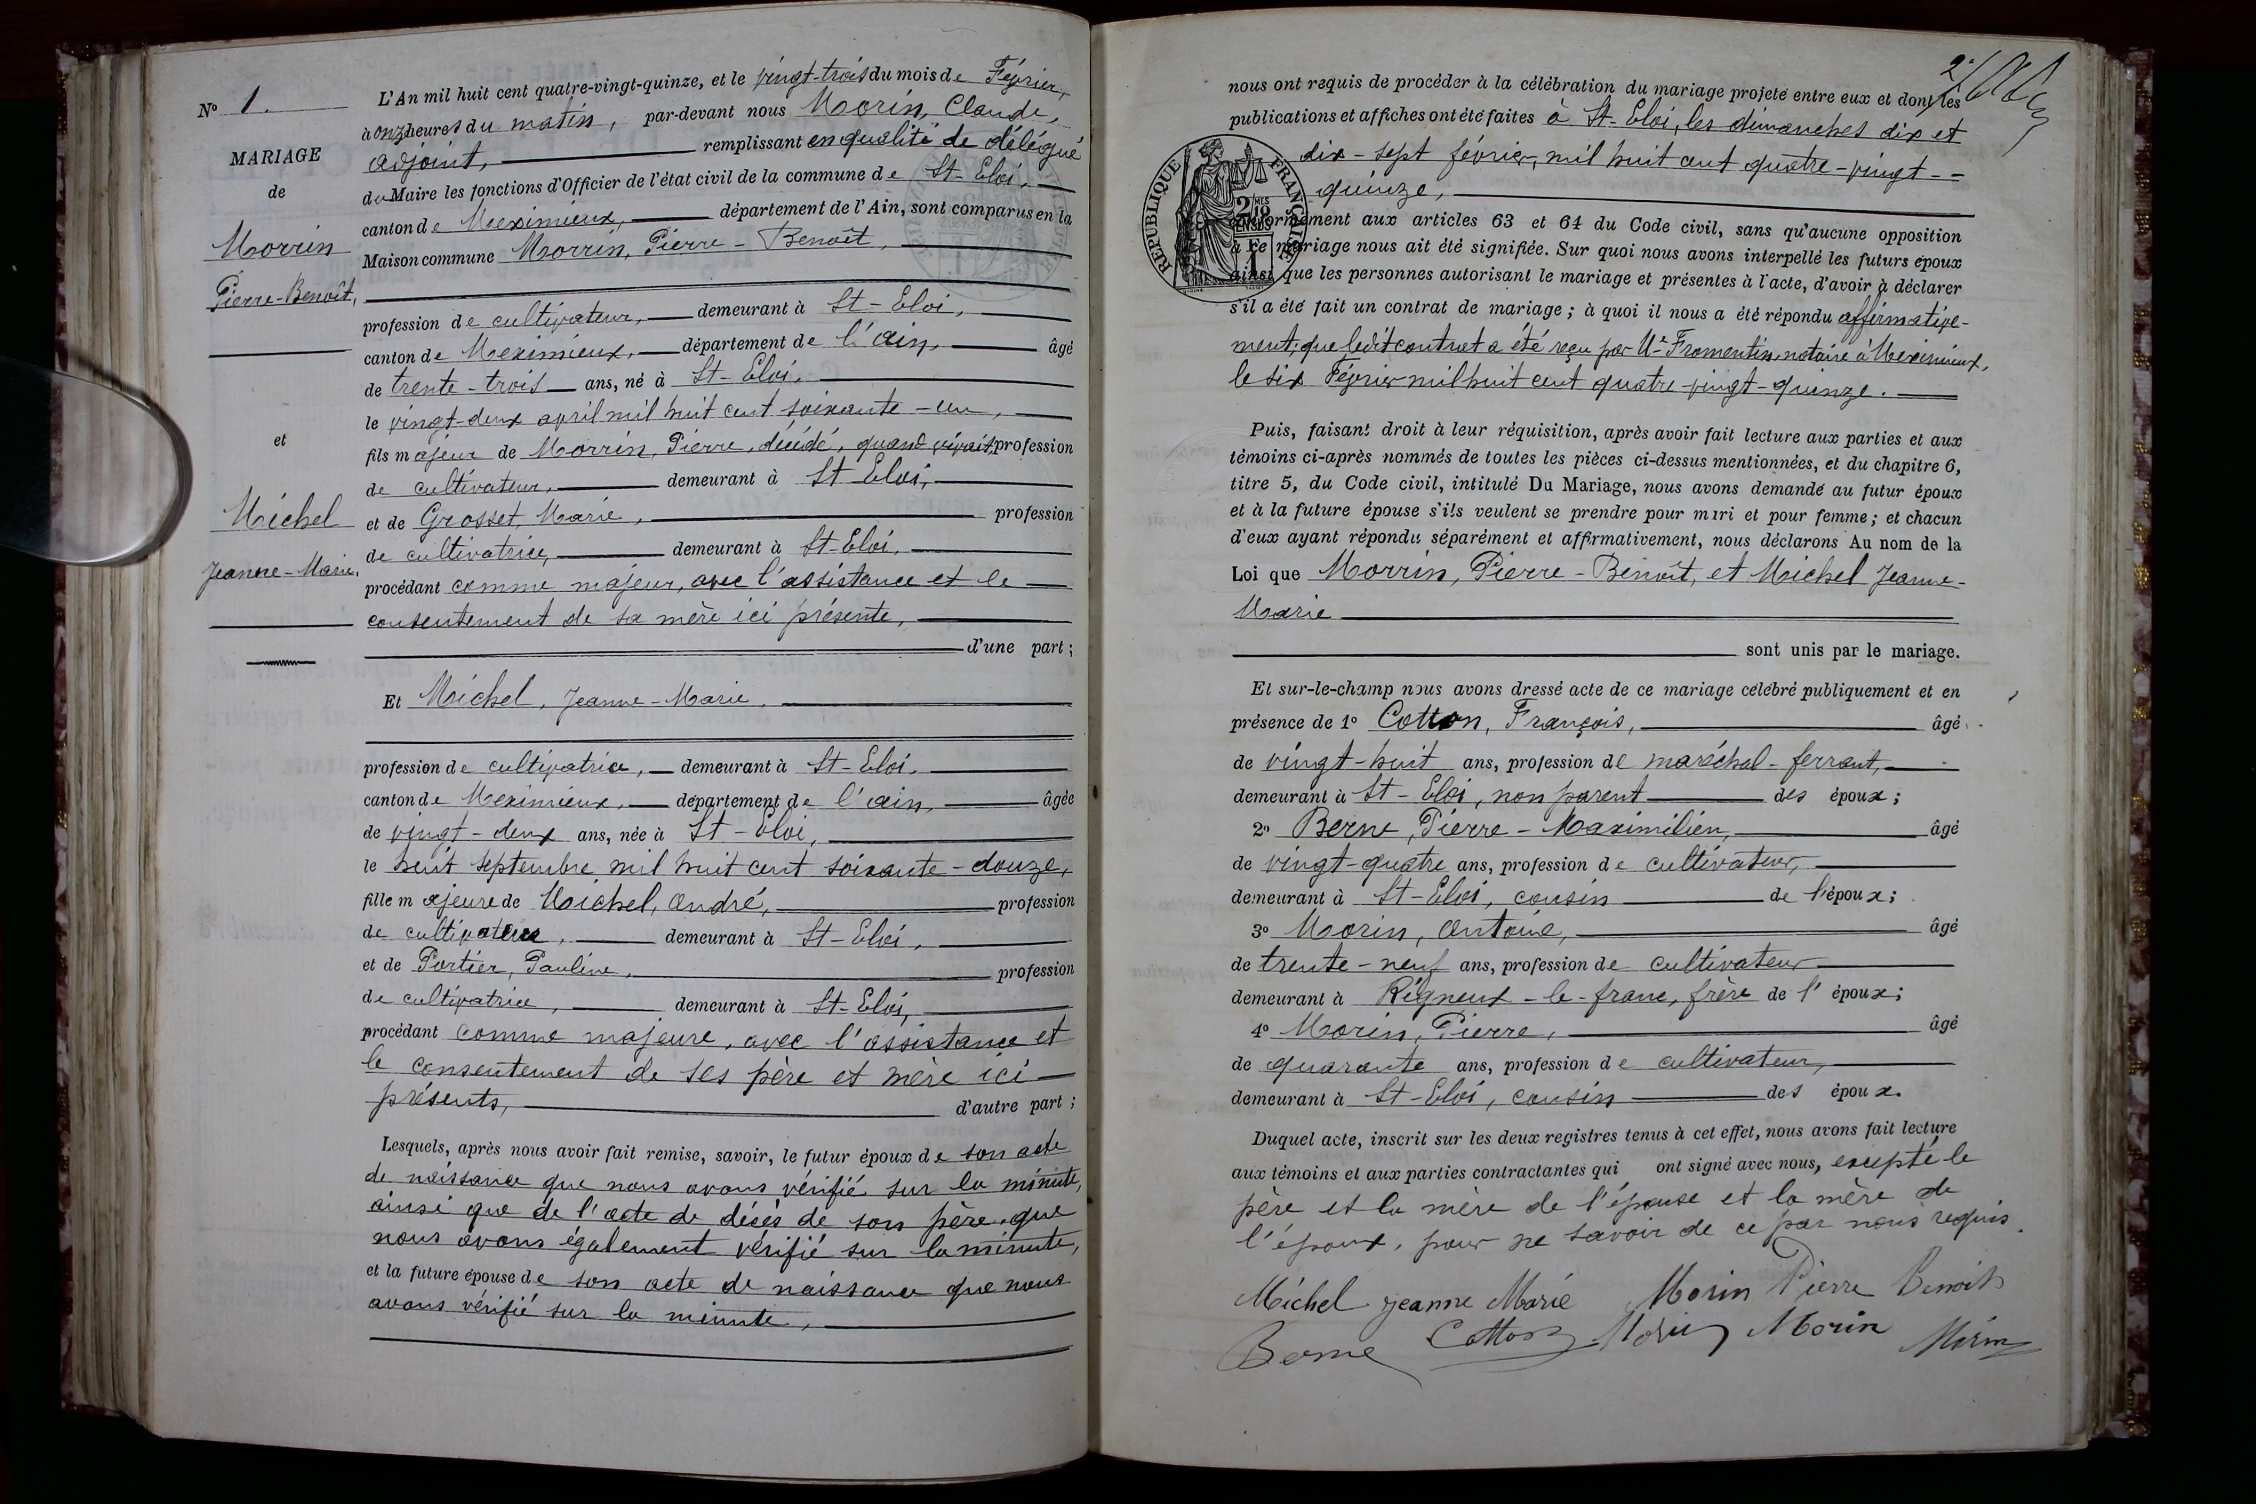 Nº 1.
MARIAGE
de
Morrin
Pierre-Benoît,
et
Michel
Jeanne-Marie,
L'An mil huit cent quatre-vingt-quinze, et le vingt-trois du mois de Février,
à onze heures du matin, par-devant nous Morin, Claude,
adjoint, remplissant en qualité de délégué
du Maire les fonctions d'Officier de l'état civil de la commune de St-Eloi,
canton de Meximieux, département de l'Ain, sont comparus en la
Maison commune Morrin, Pierre-Benoît,
profession de cultivateur, demeurant à St-Eloi,
canton de Meximieux, département de l'ain, âgé
de trente-trois ans, né à St-Eloi,
le vingt-deux avril mil huit cent soixante-un,
fils majeur de Morrin, Pierre, décédé, quand vivait, profession
de cultivateur, demeurant à St Eloi,
et de Grosset, Marie, profession
de cultivatrice, demeurant à St-Eloi,
procédant comme majeur, avec l'assistance et le
consentement de sa mère ici présente,
d'une part;
Et Michel, Jeanne-Marie,
profession de cultivatrice, demeurant à St-Eloi,
canton de Meximieux, département de l'ain, âgée
de vingt-deux ans, née à St-Eloi,
le huit septembre mil huit cent soixante-douze,
fille majeure de Michel, André, profession
de cultivateur, demeurant à St-Eloi,
et de Portier, Pauline, profession
de cultivatrice, demeurant à St-Eloi,
procédant comme majeure, avec l'assistance et
le consentement de ses père et mère ici
présents, d'autre part;
Lesquels, après nous avoir fait remise, savoir, le futur époux de son acte
de naissance que nous avons vérifié sur la minute,
ainsi que de l'acte de décès de son père, que
nous avons également vérifié sur la minute,
et la future épouse de son acte de naissance que nous
avons vérifié sur la minute,
2e
nous ont requis de procéder à la célébration du mariage projeté entre eux et dont les
publications et affiches ont été faites à St-Eloi, les dimanches dix et
dix-sept février, mil huit cent quatre-vingt-
quinze,
RÉPUBLIQUE FRANÇAISE
conformément aux articles 63 et 64 du Code civil, sans qu'aucune opposition
à ce mariage nous ait été signifiée. Sur quoi nous avons interpellé les futurs époux
ainsi que les personnes autorisant le mariage et présentes à l'acte, d'avoir à déclarer
s'il a été fait un contrat de mariage; à quoi il nous a été répondu affirmative-
ment; que ledit contrat a été reçu par Me Fromentin, notaire à Meximieux,
le six Février mil huit cent quatre-vingt-quinze.
Puis, faisant droit à leur réquisition, après avoir fait lecture aux parties et aux
témoins ci-après nommés de toutes les pièces ci-dessus mentionnées, et du chapitre 6,
titre 5, du Code civil, intitulé Du Mariage, nous avons demandé au futur époux
et à la future épouse s'ils veulent se prendre pour mari et pour femme; et chacun
d'eux ayant répondu séparément et affirmativement, nous déclarons Au nom de la
Loi que Morrin, Pierre-Benoît, et Michel Jeanne-
Marie
sont unis par le mariage.
Et sur-le-champ nous avons dressé acte de ce mariage célébré publiquement et en
présence de 1º Cotton, François, âgé
de vingt-huit ans, profession de maréchal-ferrant,
demeurant à St-Eloi, non parent des époux;
2º Berne, Pierre-Maximilien, âgé
de vingt-quatre ans, profession de cultivateur,
demeurant à St-Eloi, cousin de l'époux;
3º Morin, Antoine, âgé
de trente-neuf ans, profession de cultivateur
demeurant à Rigneux-le-franc, frère de l'époux;
4º Morin, Pierre, âgé
de quarante ans, profession de cultivateur,
demeurant à St-Eloi, cousin des époux.
Duquel acte, inscrit sur les deux registres tenus à cet effet, nous avons fait lecture
aux témoins et aux parties contractantes qui ont signé avec nous, excepté le
père et la mère de l'épouse et la mère de
l'époux, pour ne savoir de ce par nous requis.
Michel Jeanne Marie Morin Pierre Benoit
Berne Cotton Morin Morin Morin